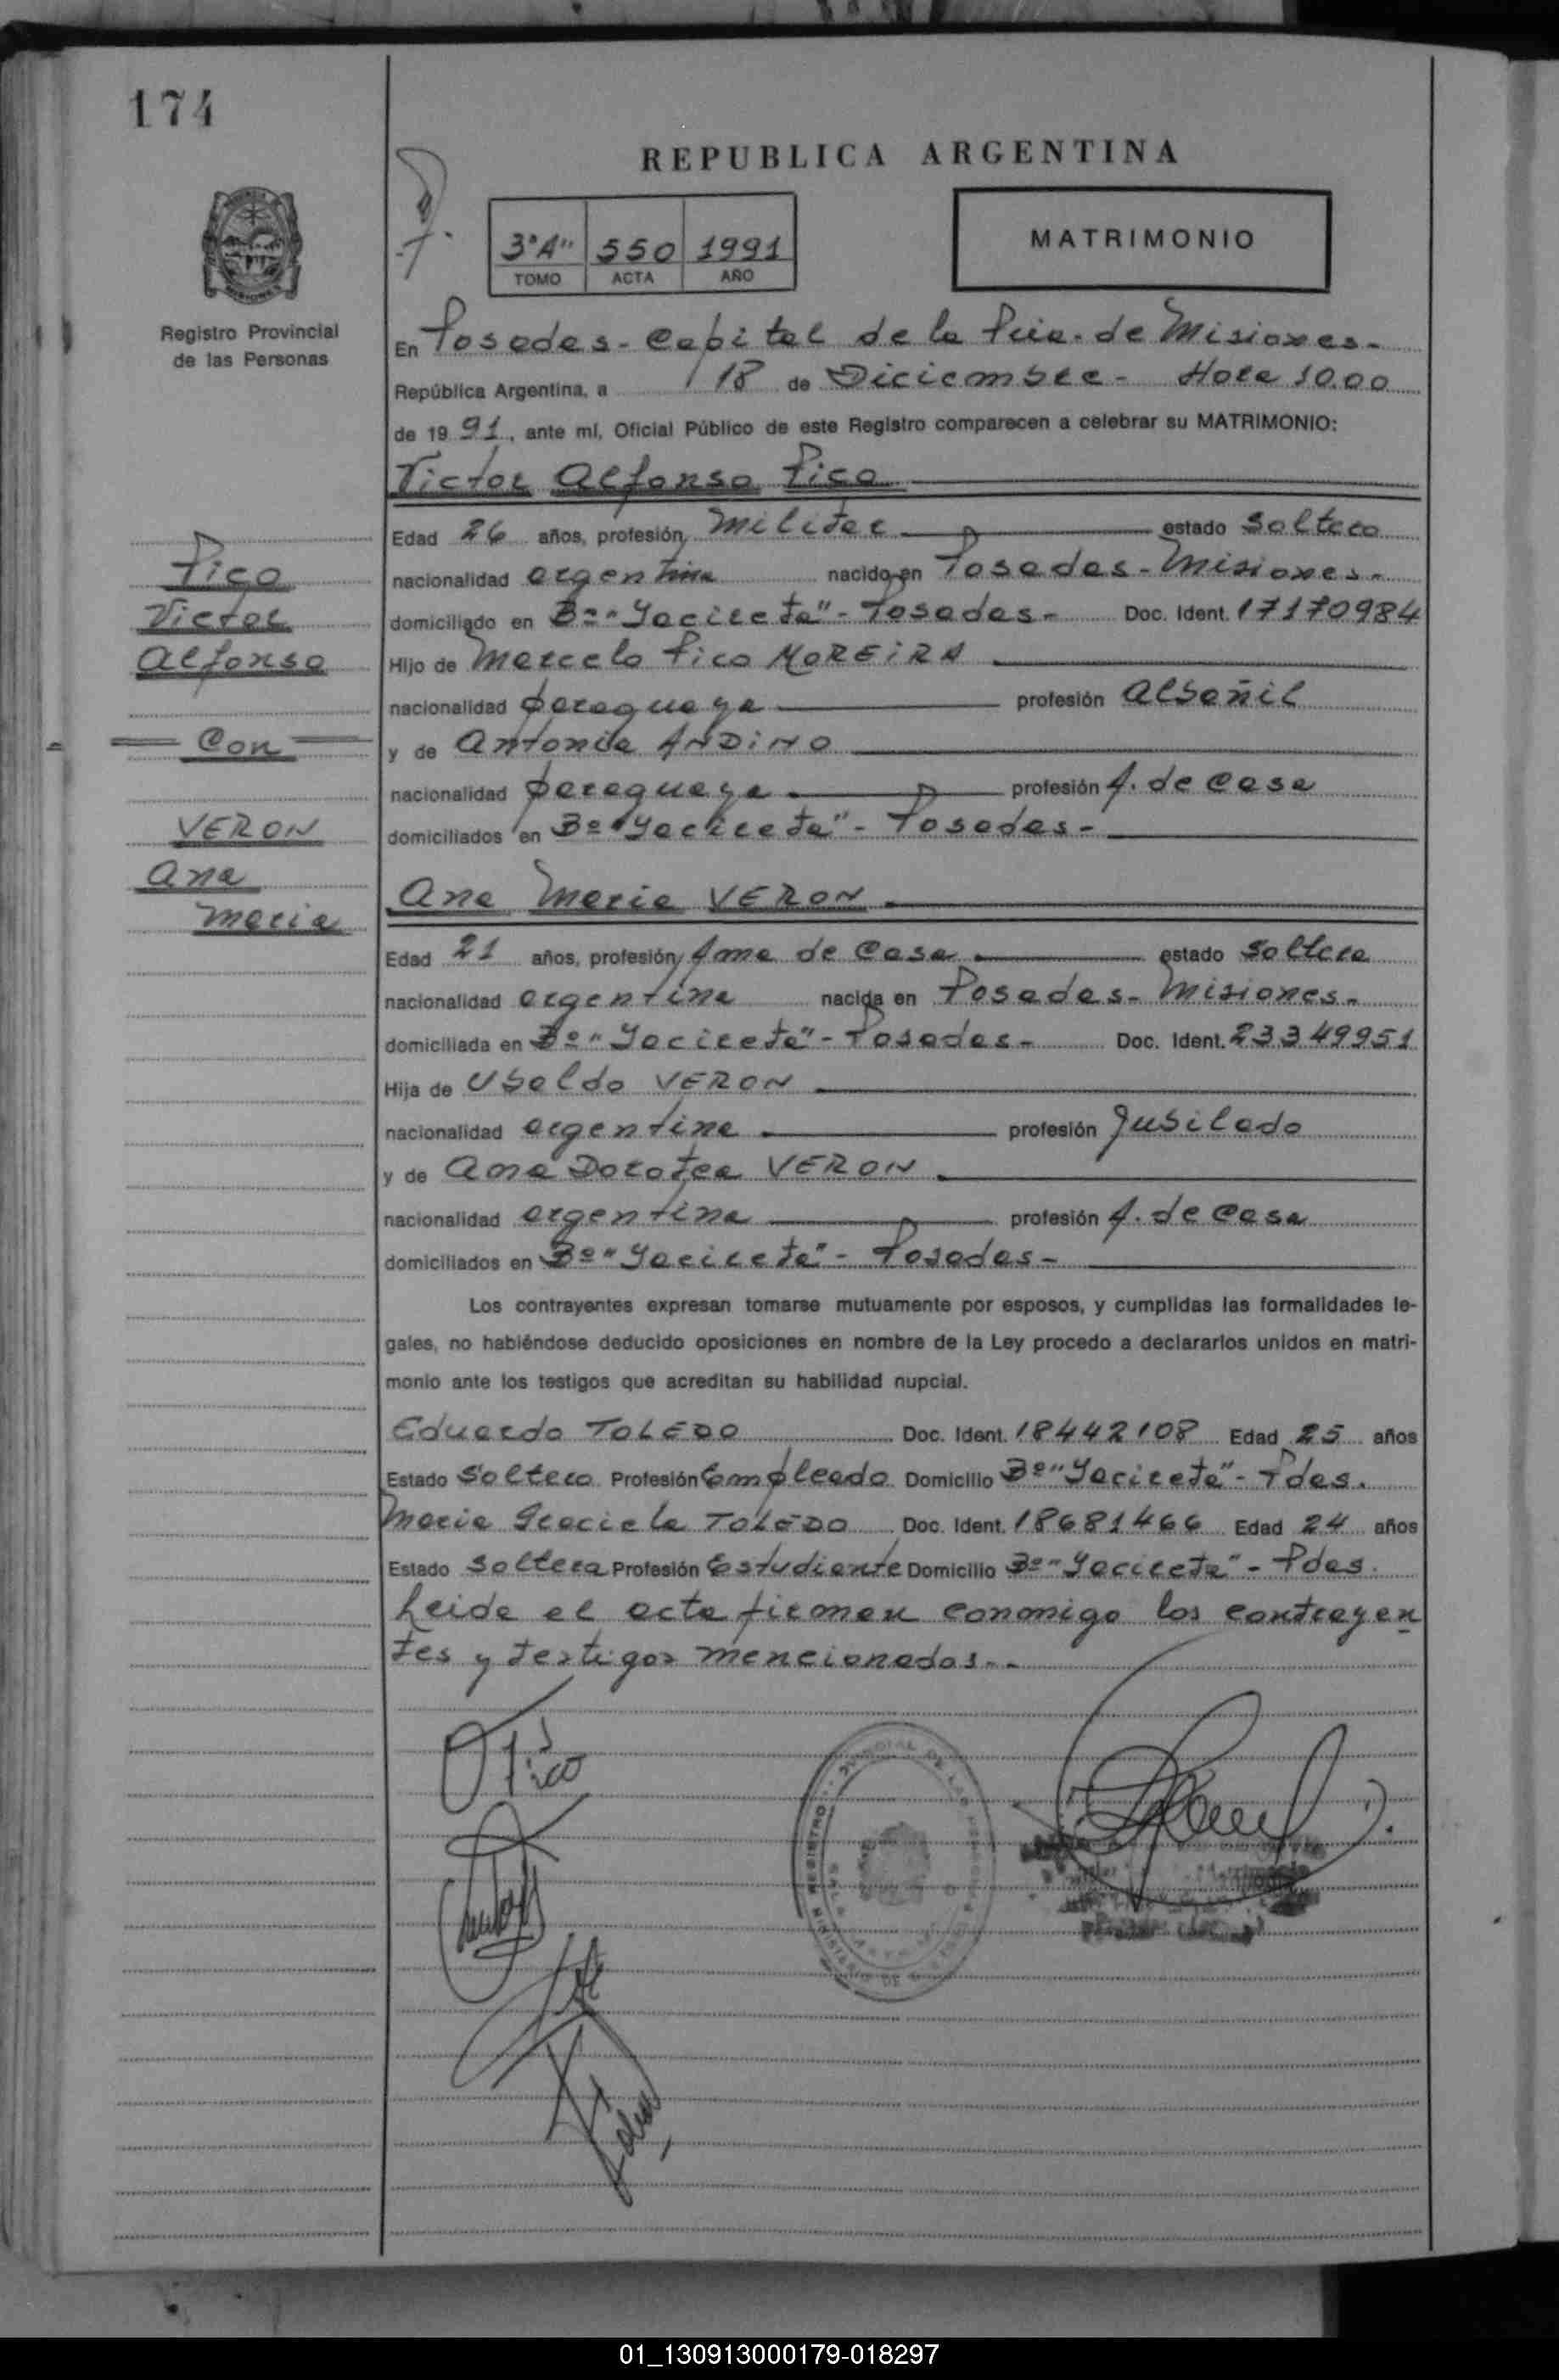 174
REPUBLICA ARGENTINA
3"A" 550 1991
TOMO ACTA AÑO
MATRIMONIO
Registro Provincial
de las Personas
En Posadas - Capital de la Pcia. de Misiones.-
República Argentina, a 18 de Diciembre - Hora 10.00
de 1991, ante mí, Oficial Público de este Registro comparecen a celebrar su MATRIMONIO:
Victor Alfonso Pico
Edad 26 años, profesión Militar estado Soltero
Pico
nacionalidad argentina nacido en Posadas - Misiones.-
Victor
domiciliado en Bº "Yacireta" - Posadas - Doc. Ident. 17170984
Alfonso
Hijo de Marcelo Pico MOREIRA
nacionalidad paraguaya profesión albañil
Con
y de Antonia ANDINO
nacionalidad paraguaya profesión A. de casa
VERON
domiciliados en Bº "Yacireta" - Posadas -
Ana
Maria
Ana Maria VERON
Edad 21 años, profesión Ama de casa estado Soltera
nacionalidad argentina nacida en Posadas - Misiones.-
domiciliada en Bº "Yacireta" - Posadas - Doc. Ident. 23349951
Hija de Ubaldo VERON
nacionalidad argentina profesión Jubilado
y de Ana Dorotea VERON
nacionalidad argentina profesión A. de casa
domiciliados en Bº "Yacireta" - Posadas -
Los contrayentes expresan tomarse mutuamente por esposos, y cumplidas las formalidades le-
gales, no habiéndose deducido oposiciones en nombre de la Ley procedo a declararlos unidos en matri-
monio ante los testigos que acreditan su habilidad nupcial.
Eduardo TOLEDO Doc. Ident. 18442108 Edad 25 años
Estado Soltero Profesión Empleado Domicilio Bº "Yacireta" - Pdas.
Maria Graciela TOLEDO Doc. Ident. 18681466 Edad 24 años
Estado Soltera Profesión Estudiante Domicilio Bº "Yacireta" - Pdas.
Leida el acta firman conmigo los contrayen
tes y testigos mencionados.-
Pico
01_130913000179-018297